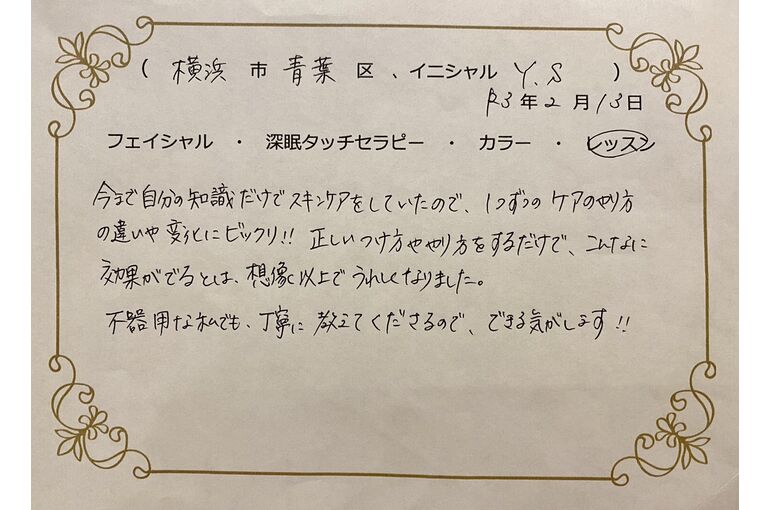 ( 横浜 市 青葉 区 、イニシャル Y.S )
R3 年 2 月 13 日
フェイシャル ・ 深眠タッチセラピー ・ カラー ・ レッスン
今まで自分の知識だけでスキンケアをしていたので、1つずつのケアのやり方
の違いや変化にビックリ!! 正しいつけ方ややり方をするだけで、こんなに
効果がでるとは、想像以上でうれしくなりました。
不器用な私でも、丁寧に教えてくださるので、できる気がします!!